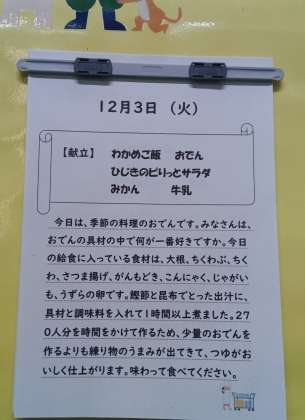 12月3日 (火)
【献立】 わかめご飯 おでん
ひじきのピリっとサラダ
みかん 牛乳
今日は、季節の料理のおでんです。みなさんは、
おでんの具材の中で何が一番好きですか。今日
の給食に入っている食材は、大根、ちくわぶ、ちく
わ、さつま揚げ、がんもどき、こんにゃく、じゃがい
も、うずらの卵です。鰹節と昆布でとった出汁に、
具材と調味料を入れて1時間以上煮ました。27
0人分を時間をかけて作るため、少量のおでんを
作るよりも練り物のうまみが出てきて、つゆがお
いしく仕上がります。味わって食べてください。